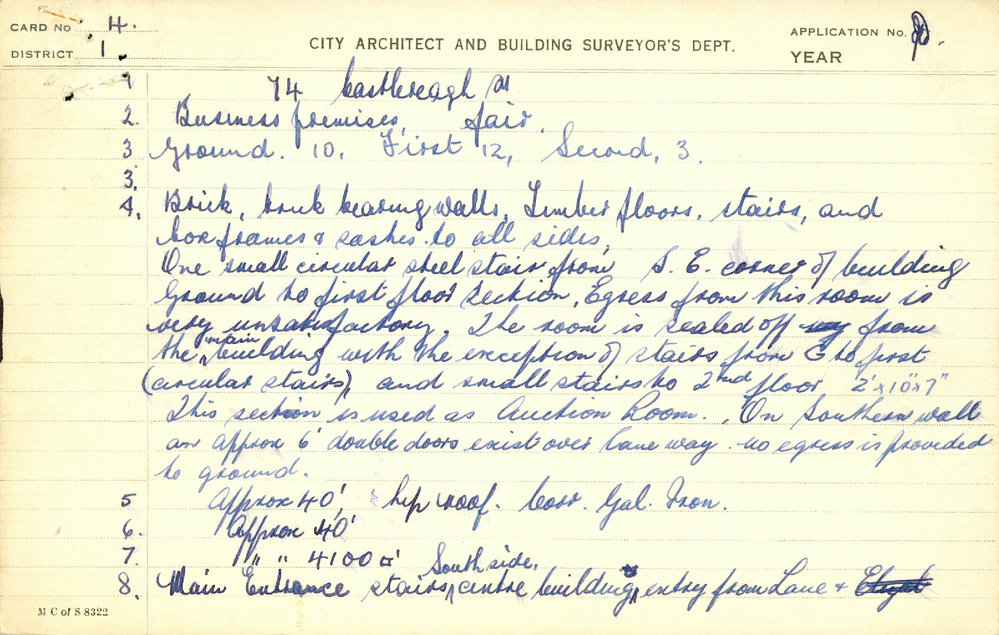 CARD No 4.
APPLICATION No.
DISTRICT 1.
CITY ARCHITECT AND BUILDING SURVEYOR'S DEPT.
YEAR
1 74 Castlereagh St
2. Business premises, fair.
3 Ground. 10. First 12, Second, 3.
3.
4. Brick, brick bearing walls, Timber floors, stairs, and
box frames & sashes to all sides,
One small circular steel stair from S. E. corner of building
Ground to first floor section, Egress from this room is
very unsatisfactory. The room is sealed off from
the main building with the exception of stairs from G to first
(circular stairs), and small stairs to 2nd floor 2' x 10" x 7"
This section is used as Auction Room. On Southern wall
an approx 6' double doors exist over lane way. no egress is provided
to ground.
5 Approx 40', hip roof. Corr. Gal. Iron.
6. Approx 40'
7. " " 4100 □' South side.
8. Main Entrance stairs, centre building, entry from Lane &
M C of S 8322